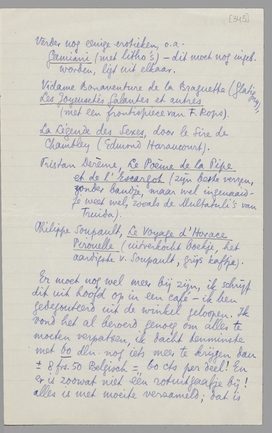 [345]
Verder nog eenige erotieken, o.a.
Gamiani (met litho's) – dit moet nog ingeb.
worden, ligt uit elkaar.
Vidame Bonaventure de la Braguette
Les Joyeusetés Galantes et autres
(met een frontispiece van F. Rops).
La Légende des Sexes, door le Sire de
Chambley (Edmond Haraucourt).
Tristan Derème, Le Poème de la Pipe
et de l'Escargot (zijn beste verzen,
zonder bandje, maar wel ingenaaid
Philippe Soupault, Le Voyage d'Horace
Pirouelle (uitverkocht boekje, het
aardigste v. Soupault, grijs kaftje).
Er moet nog wel meer bij zijn, ik schrijf
dit uit hoofd op in een café – ik ben
gedegouteerd uit de winkel geloopen. Ik
vond het al beroerd genoeg om alles te
moeten verpatsen, ik dacht tenminste
met 60 den nog iets meer te krijgen dan
± 8 frs. 50 Belgisch = 60 cts per deel! En
er is zoowat niet één rotuitgaafje bij!
alles is met moeite verzameld; dat is